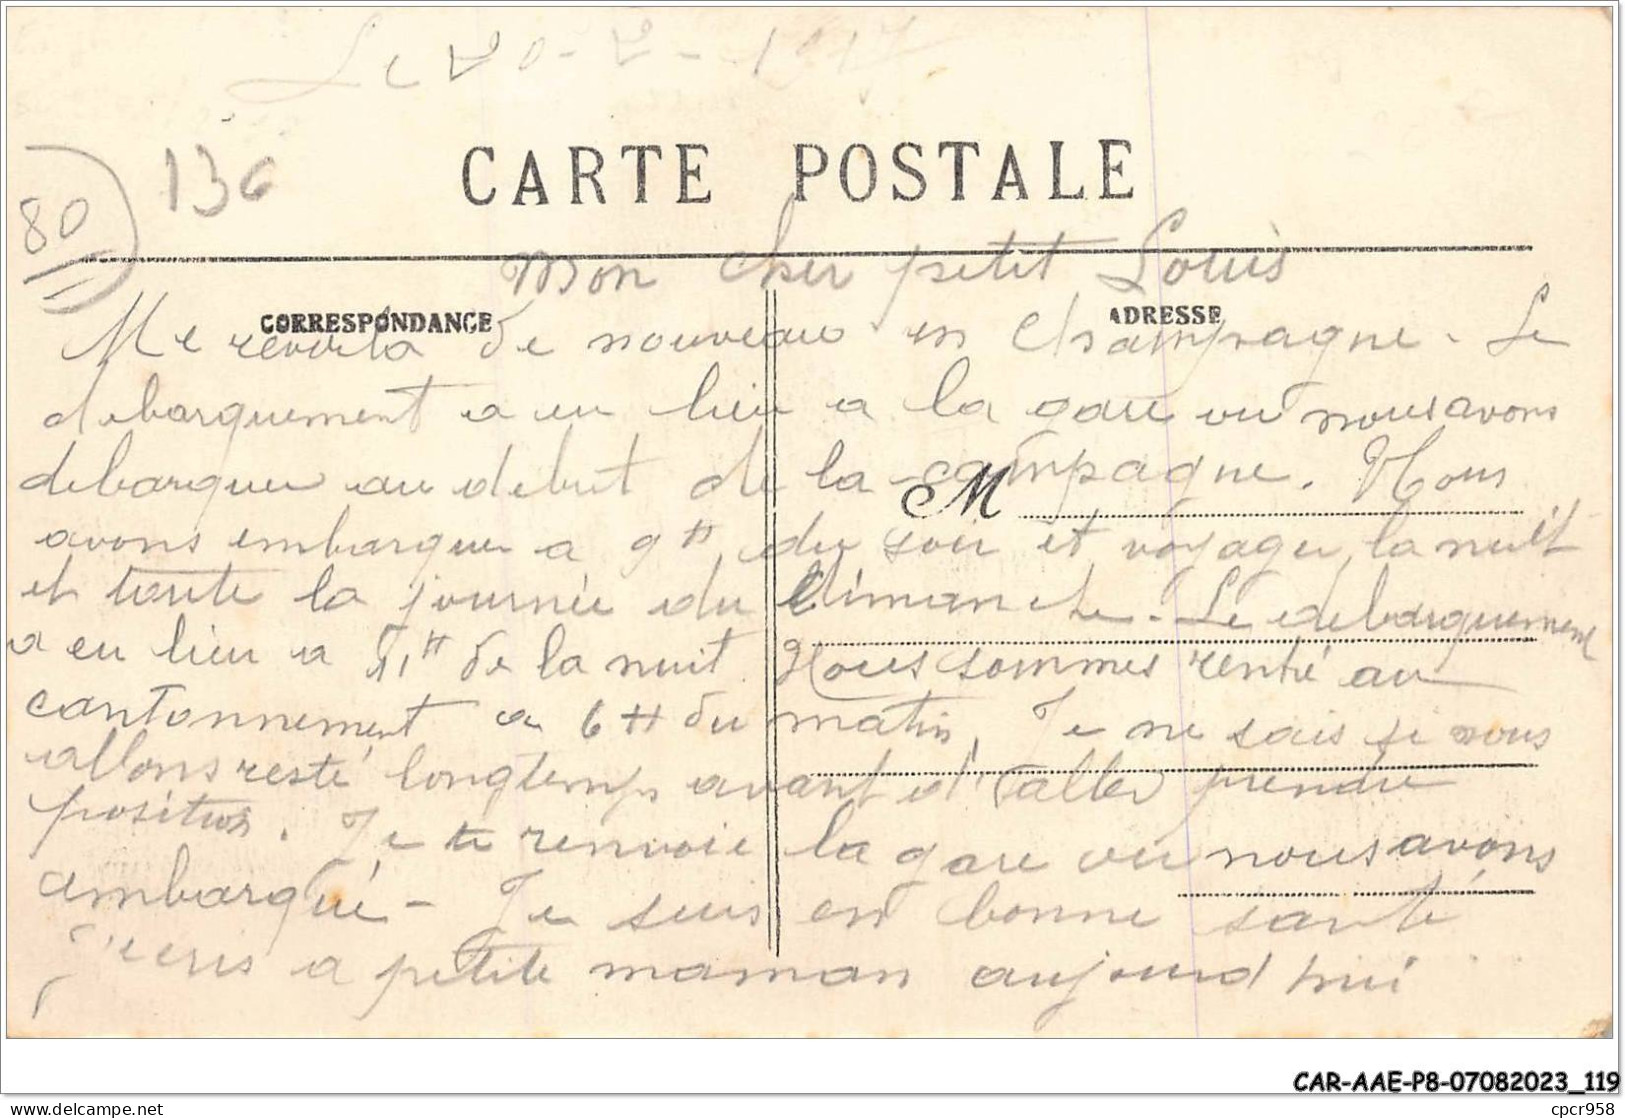 Le 20-2-1917
136
80
CARTE POSTALE
Mon cher petit Louis
CORRESPONDANCE
ADRESSE
Me revoila de nouveau en Champagne. Le
debarquement a eu lieu a la gare ou nous avons
debarquer au debut de la campagne. Nous
M
avons embarquer a 9H du soir et voyager la nuit
et toute la journée du dimanche. Le debarquement
a eu lieu a 11H de la nuit. Nous sommes rentré au
cantonnement a 6H du matin. Je ne sais si nous
allons resté longtemps avant d'aller prendre
position. Je te renvoie la gare ou nous avons
embarqué - Je suis en bonne santé
J'ecris a petite maman aujourd hui
CAR-AAE-P8-07082023_119
www.delcampe.net
cpcr958